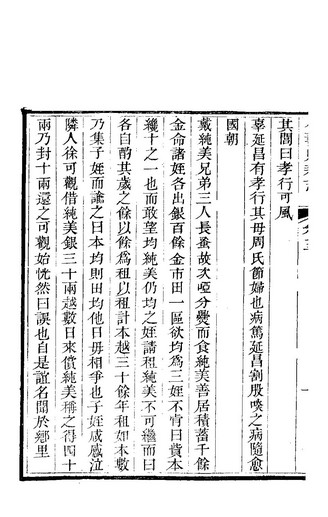 其閭曰孝行可風
辜延昌有孝行其母周氏節婦也病篤延昌割股啖之病隨愈
國朝
戴純美兄弟三人長蚤故次啞分爨而食純美善居積蓄千餘
金命諸姪各出銀百餘金市田一區欲均爲三姪不肯曰費本
纔十之一也而敢望均純美仍均之姪請租純美不可繼而曰
各自酌其歲之餘以餘爲租以租計本越三十餘年租如本數
乃集子姪而諭之曰本均則田均他日毋相爭也子姪咸感泣
隣人徐可觀借純美銀三十兩越數日來償純美稱之得四十
兩乃封十兩還之可觀始恍然曰誤也自是誼名聞於鄉里